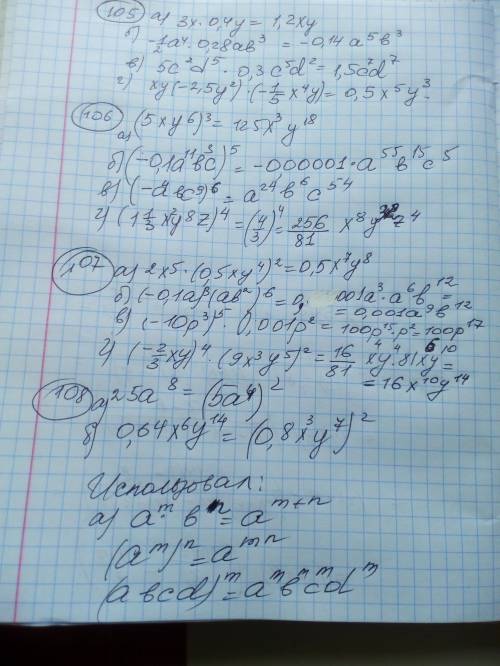 105 а) 3x · 0,4y = 1,2xy
б) -1/2 a⁴ · 0,28ab³ = -0,14 a⁵b³
в) 5c²d⁵ · 0,3c⁵d² = 1,5c⁷d⁷
г) xy(-2,5y²) · (-1/5 x⁴y) = 0,5x⁵y³
106 а) (5xy⁶)³ = 125x³y¹⁸
б) (-0,1a¹¹b³c)⁵ = -0,00001 · a⁵⁵b¹⁵c⁵
в) (-a⁴bc⁹)⁶ = a²⁴b⁶c⁵⁴
г) (1 1/3 x²y⁸z)⁴ = (4/3)⁴ = 256/81 x⁸y³²z⁴
107 а) 2x⁵ · (0,5xy⁴)² = 0,5x⁷y⁸
б) (-0,1a)³(ab²)⁶ = 0, 001a³ · a⁶b¹² =
= 0,001a⁹b¹²
в) (-10p³)⁵ · 0,001p² = 100p¹⁵ · p² = 100p¹⁷
г) (-2/3 xy)⁴ · (9x³y⁵)² = 16/81 x⁴y⁴ · 81x⁶y¹⁰ =
= 16x¹⁰y¹⁴
108 а) 25a⁸ = (5a⁴)²
б) 0,64x⁶y¹⁴ = (0,8x³y⁷)²
Использовал:
а) aᵐ · bⁿ = aᵐ⁺ⁿ
(aᵐ)ⁿ = aᵐⁿ
(abcd)ᵐ = aᵐbᵐcᵐdᵐ